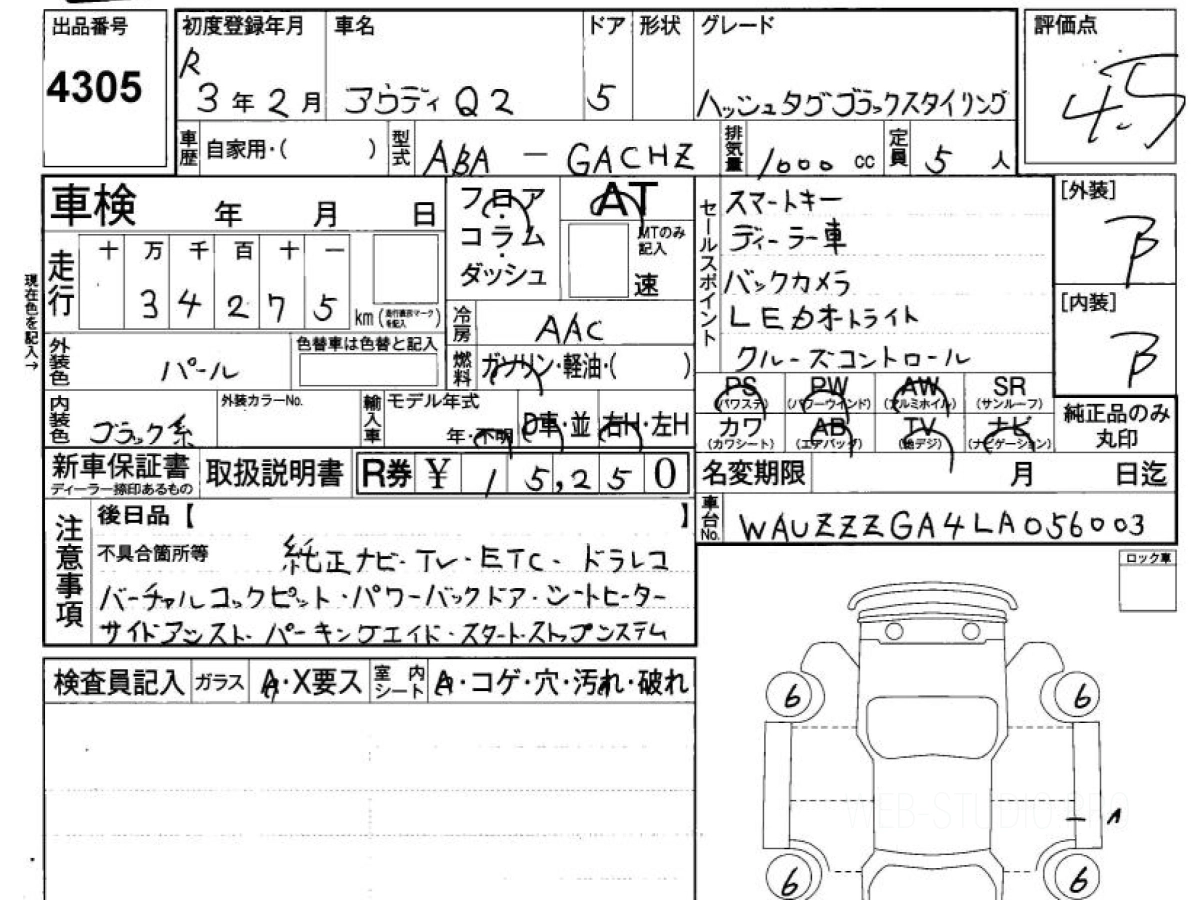 出品番号
4305
初度登録年月
R
3年2月
車名
アウディ Q2
ドア
5
形状
グレード
ハッシュタグブラックスタイリング
評価点
4.5
車歴
自家用・( )
型式
ABA - GACHZ
排気量
1000 cc
定員
5 人
車検 年 月 日
走行
十 万 千 百 十 一
3 4 2 7 5
km (走行表示マークを記入)
現在色を記入→
フロア
コラム
ダッシュ
AT
MTのみ記入
速
冷房
AAC
燃料
ガソリン・軽油・( )
セールスポイント
スマートキー
ディーラー車
バックカメラ
LEDオートライト
クルーズコントロール
[外装]
B
[内装]
B
外装色
パール
色替車は色替と記入
内装色
ブラック系
外装カラーNo.
輸入車
モデル年式
年・不明
D車・並
右H・左H
PS (パワステ)
PW (パワーウインド)
AW (アルミホイル)
SR (サンルーフ)
カワ (カワシート)
AB (エアバッグ)
TV (地デジ)
ナビ (ナビゲーション)
純正品のみ丸印
新車保証書
ディーラー捺印あるもの
取扱説明書
R券 ¥ 15,250
名変期限 月 日迄
車台No.
WAUZZZGA4LA056003
注意事項
後日品【 】
不具合箇所等
純正ナビ・TV・ETC・ドラレコ
バーチャルコックピット・パワーバックドア・シートヒーター
サイドアシスト・パーキングエイド・スタートストップシステム
ロック車
検査員記入
ガラス
A・X要ス
室内シート
A・コゲ・穴・汚れ・破れ
6
6
WEB-STUDIO.PRO
A
6
6